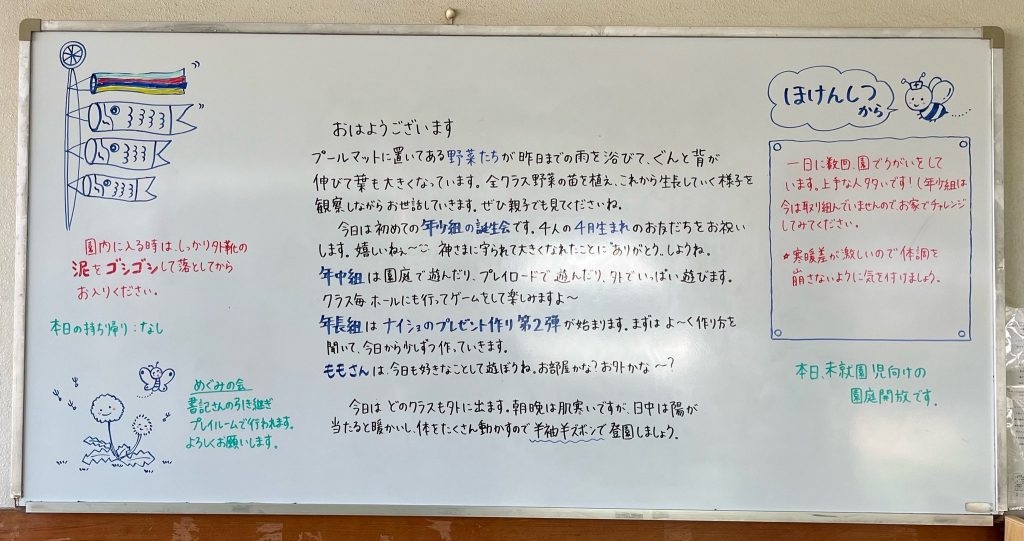 おはようございます
プールマットに置いてある野菜たちが昨日までの雨を浴びて、ぐんと背が
伸びて葉も大きくなっています。全クラス野菜の苗を植え、これから生長していく様子を
観察しながらお世話していきます。ぜひ親子でも見てくださいね。
今日は初めての年少組の誕生会です。4人の4月生まれのお友だちをお祝い
します。嬉しいねぇ〜 神さまに守られて大きくなれたことに"ありがとう"しようね。
年中組は園庭で遊んだり、プレイロードで遊んだり、外でいっぱい遊びます。
クラス毎ホールにも行ってゲームをして楽しみますよ〜
年長組はナイショのプレゼント作り第2弾が始まります。まずはよ〜く作り方を
聞いて、今日から少しずつ作っていきます。
ももさんは、今日も好きなことして遊ぼうね。お部屋かな?お外かな〜?
今日はどのクラスも外に出ます。朝晩は肌寒いですが、日中は陽が
当たると暖かいし、体をたくさん動かすので半袖半ズボンで登園しましょう。
園内に入る時は、しっかり外靴の
泥をゴシゴシして落としてから
お入りください。
本日の持ち帰り:なし
めぐみの会
書記さんの引き継ぎ
プレイルームで行われます。
よろしくお願いします。
ほけんしつ
から
一日に数回、園でうがいをして
います。上手な人多いです!(年少組は
今は取り組んでいませんのでお家でチャレンジ
してみてください。
*寒暖差が激しいので体調を
崩さないように気を付けましょう。
本日、未就園児向けの
園庭開放です。